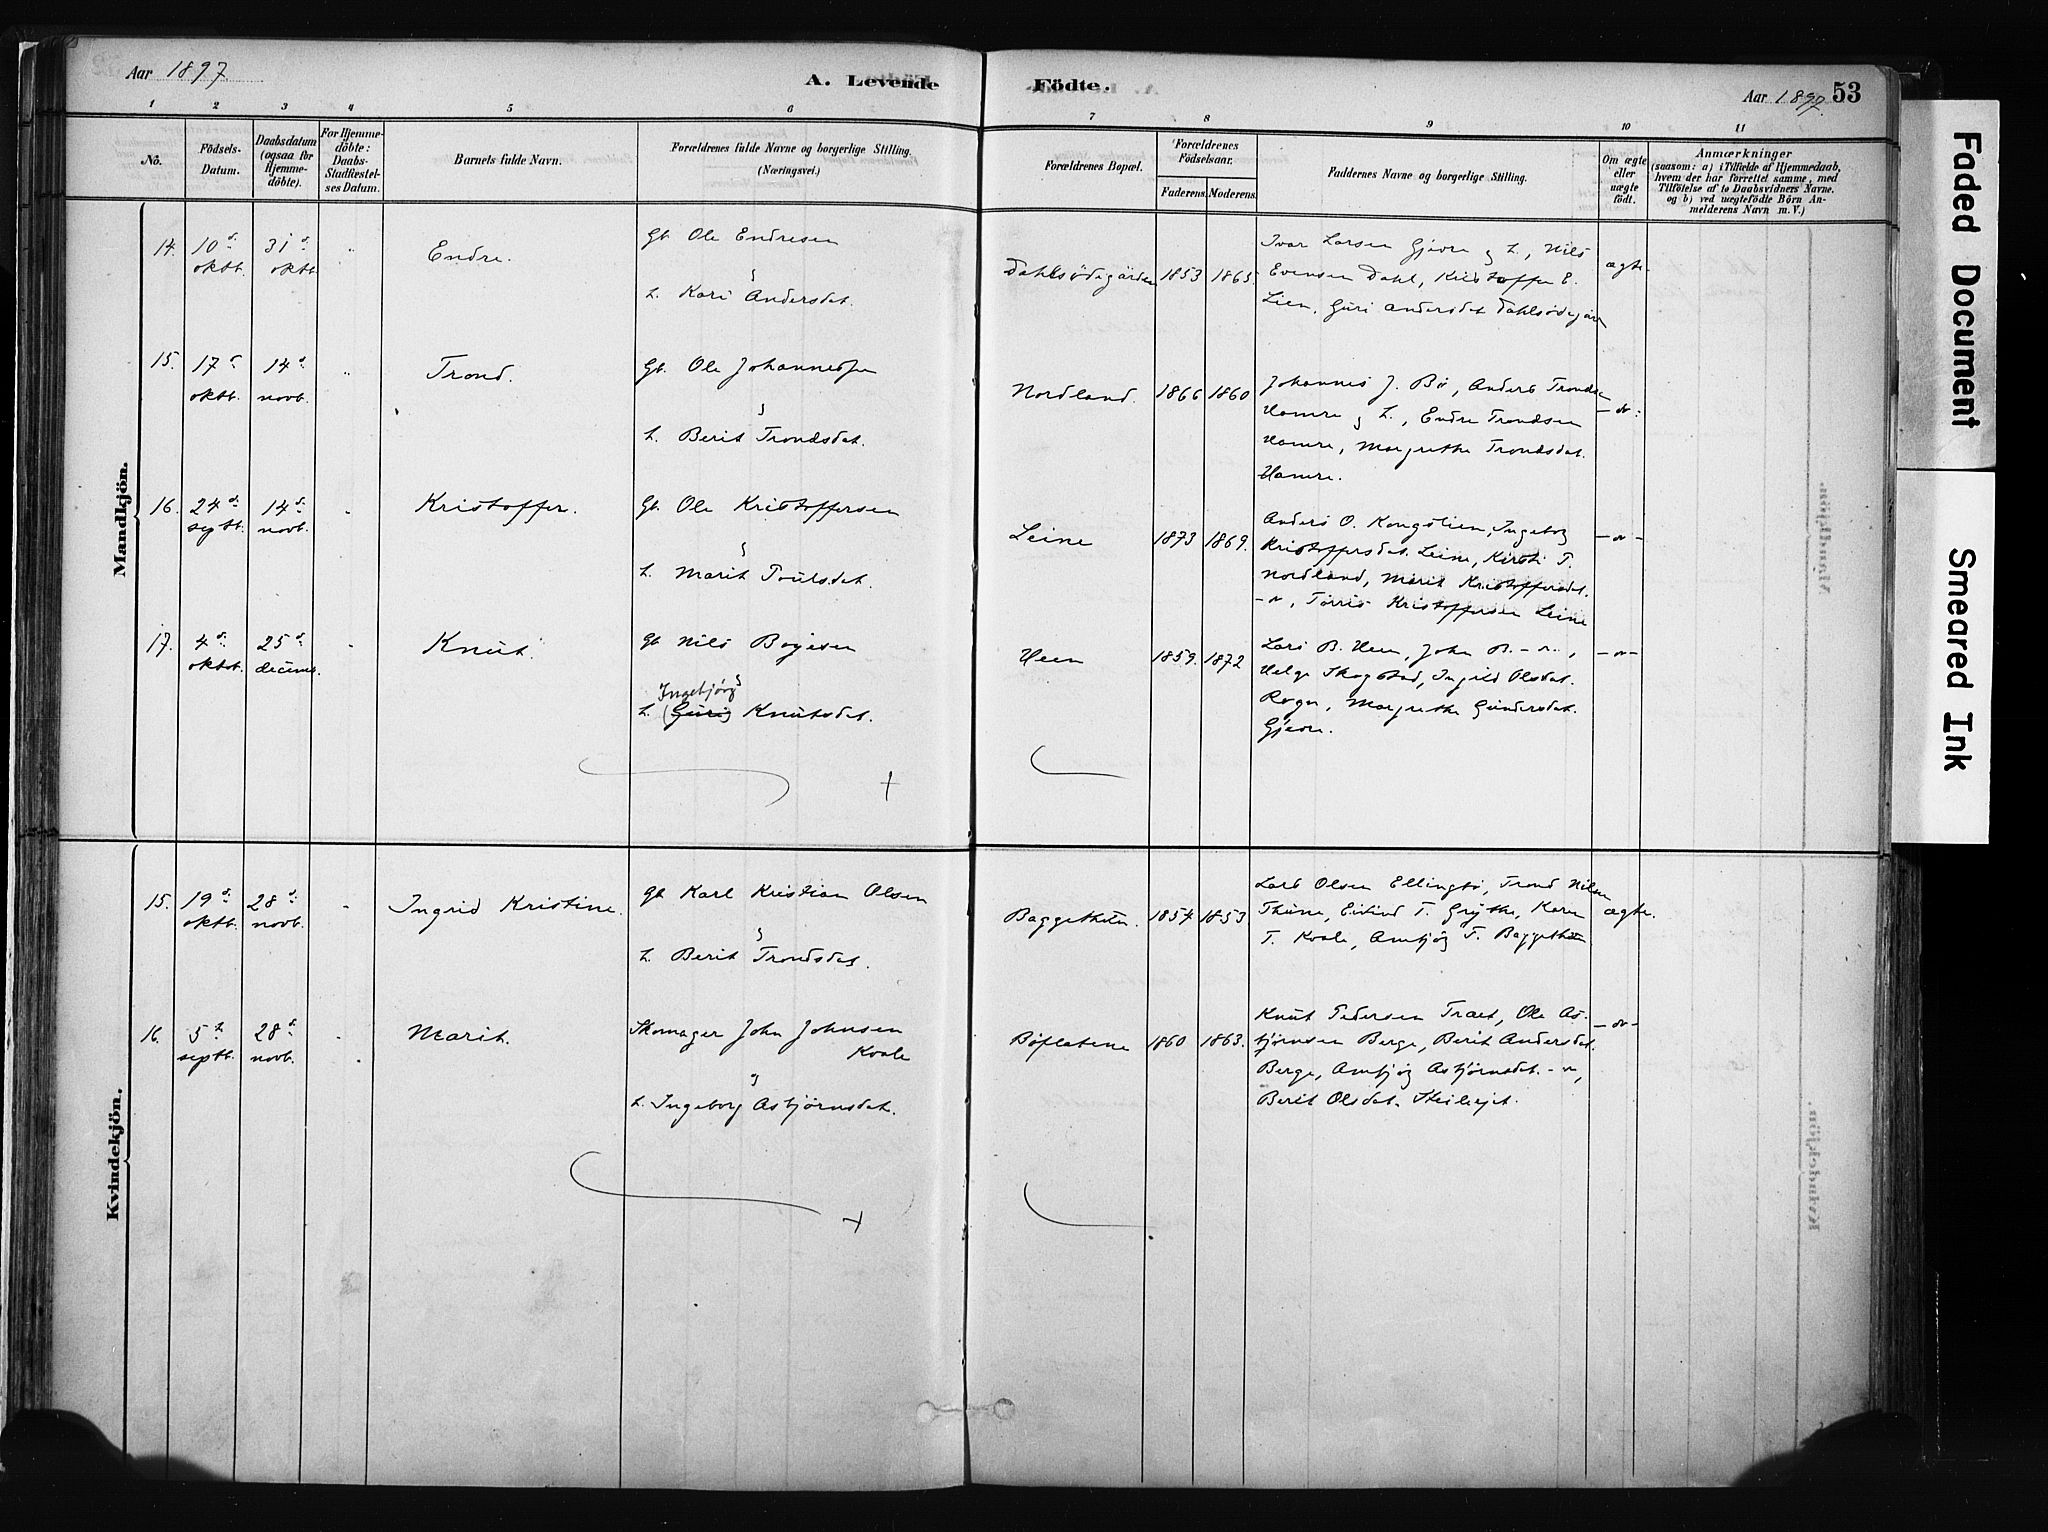 Aar 1897.
A. Levende Födte.
Aar 1897. 53
1 2 3 4 5 6 7 8 9 10 11
No.
Födsels-
Datum.
Daabsdatum
(ogsaa for
Hjemme-
döbte).
For Hjemme-
döbte:
Daabs-
Stadfæstel-
ses Datum.
Barnets fulde Navn.
Forældrenes fulde Navne og borgerlige Stilling.
(Næringsvei.)
Forældrenes Bopæl.
Forældrenes
Födselsaar.
Faderens. Moderens.
Faddernes Navne og borgerlige Stilling.
Om ægte
eller
uægte
födt.
Anmærkninger
(saasom: a) i Tilfælde af Hjemmedaab,
hvem der har forrettet samme, med
Tilföielse af to Daabsvidners Navne.
og b) ved uægtefödte Börn An-
melderens Navn m. V.)
Mandkjön.
14. 10 d. oktb. 31 d. oktb. " Endre.
Gb. Ole Endresen
&
h. Kari Andersdat.
Dahlsødegården 1853 1865.
Ivar Larsen Gjevre & h., Nils
Evensen Dahl, Kristoffer E.
Lien, Guri Andersdat Dahlsødegår
ægte
15. 17 d. oktb. 14 d. novb. " Trond.
Gb. Ole Johannessen
&
h. Berit Trondsdat.
Nordland. 1866 1860
Johannes J. Bö, Anders Trondsen
Hamre & h., Endre Trondsen
Hamre, Margrethe Trondsdat.
Hamre.
16. 24 d. septb. 14 d. novb. " Kristoffer.
Gb. Ole Kristoffersen
&
h. Marit Poulsdat.
Leine 1873 1869.
Anders O. Kongslien, Ingeborg
Kristoffersdat. Leine, Kirsti T.
Nordland, Marit Kristoffersdat.
-"-, Torris Kristoffersen Leine
-"-
17. 4 d. oktob. 25 d. decemb. " Knut.
Gb. Nils Bøyesen
&
Ingebjørg
h. (Guri) Knutsdat.
Heen 1859. 1872
Lars B. Heen, John B. -"-,
Helge Skogstad, Ingrid Olsdat.
Rogn, Margrethe Gundersdat.
Gjevre.
-"-
Kvindekjön.
15. 19 d. oktb. 28 d. novb. " Ingrid Kristine.
Gb. Karl Kristian Olsen
&
h. Berit Trondsdat.
Baggethun. 1854 1853
Lars Olsen Ellingbö, Trond Nilsen
Thune, Eivind T. Grythe, Karen
T. Kvale, Ambjøg T. Baggethun
ægte.
16. 5 t. septb. 28 d. novb. " Marit.
Skomager John Johnsen
Kvale
&
h. Ingeborg Asbjørnsdat.
Böflatene 1860 1863.
Knut Pedersen Træet, Ole As-
bjørnsen Berge, Berit Andersdat.
Berge, Ambjøg Asbjørnsdat. -"-,
Berit Olsdat.
-"-
Faded Document
Smeared Ink